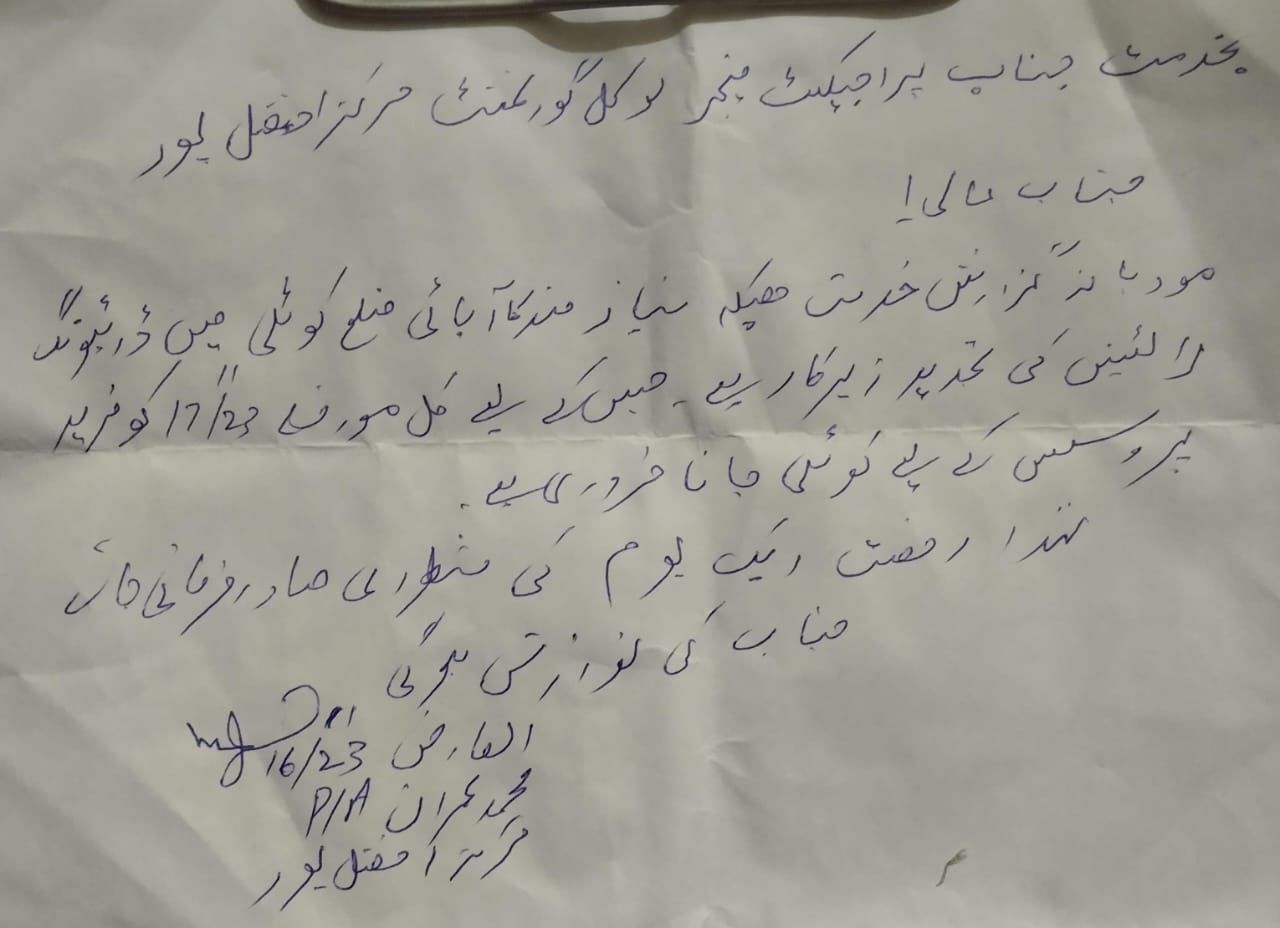 بخدمت جناب پراجیکٹ منیجر لوکل گورنمنٹ مرکز افضل پور
جناب عالی!
مودبانہ گزارش خدمت ھیکہ نیاز مند کا آبائی ضلع کوٹلی میں ڈرائیونگ
لائسنس کی تجدید زیرکار ہے۔ جس کے لیے کل مورخہ 17/11/23 کو مزید
پروسس کے لیے کوٹلی جانا ضروری ہے۔
لہذا رخصت ایک یوم کی منظوری صادر فرمائی جائے
جناب کی نوازش ہوگی
العارض 16/11/23
محمد عمران P/A
مرکز افضل پور